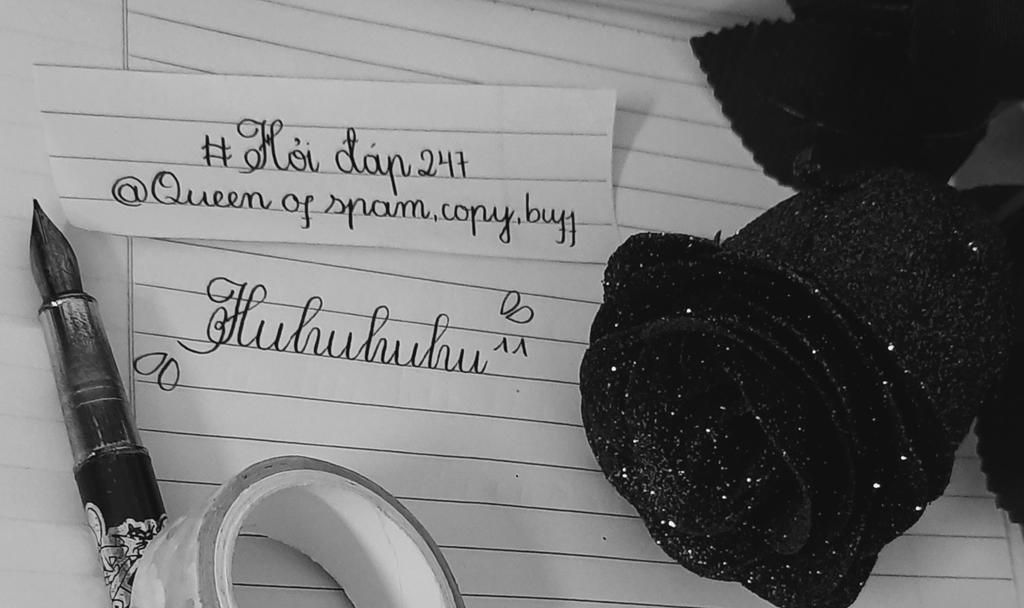 #Hỏi đáp 247
@Queen of spam, copy, buff
Huhuhuhu